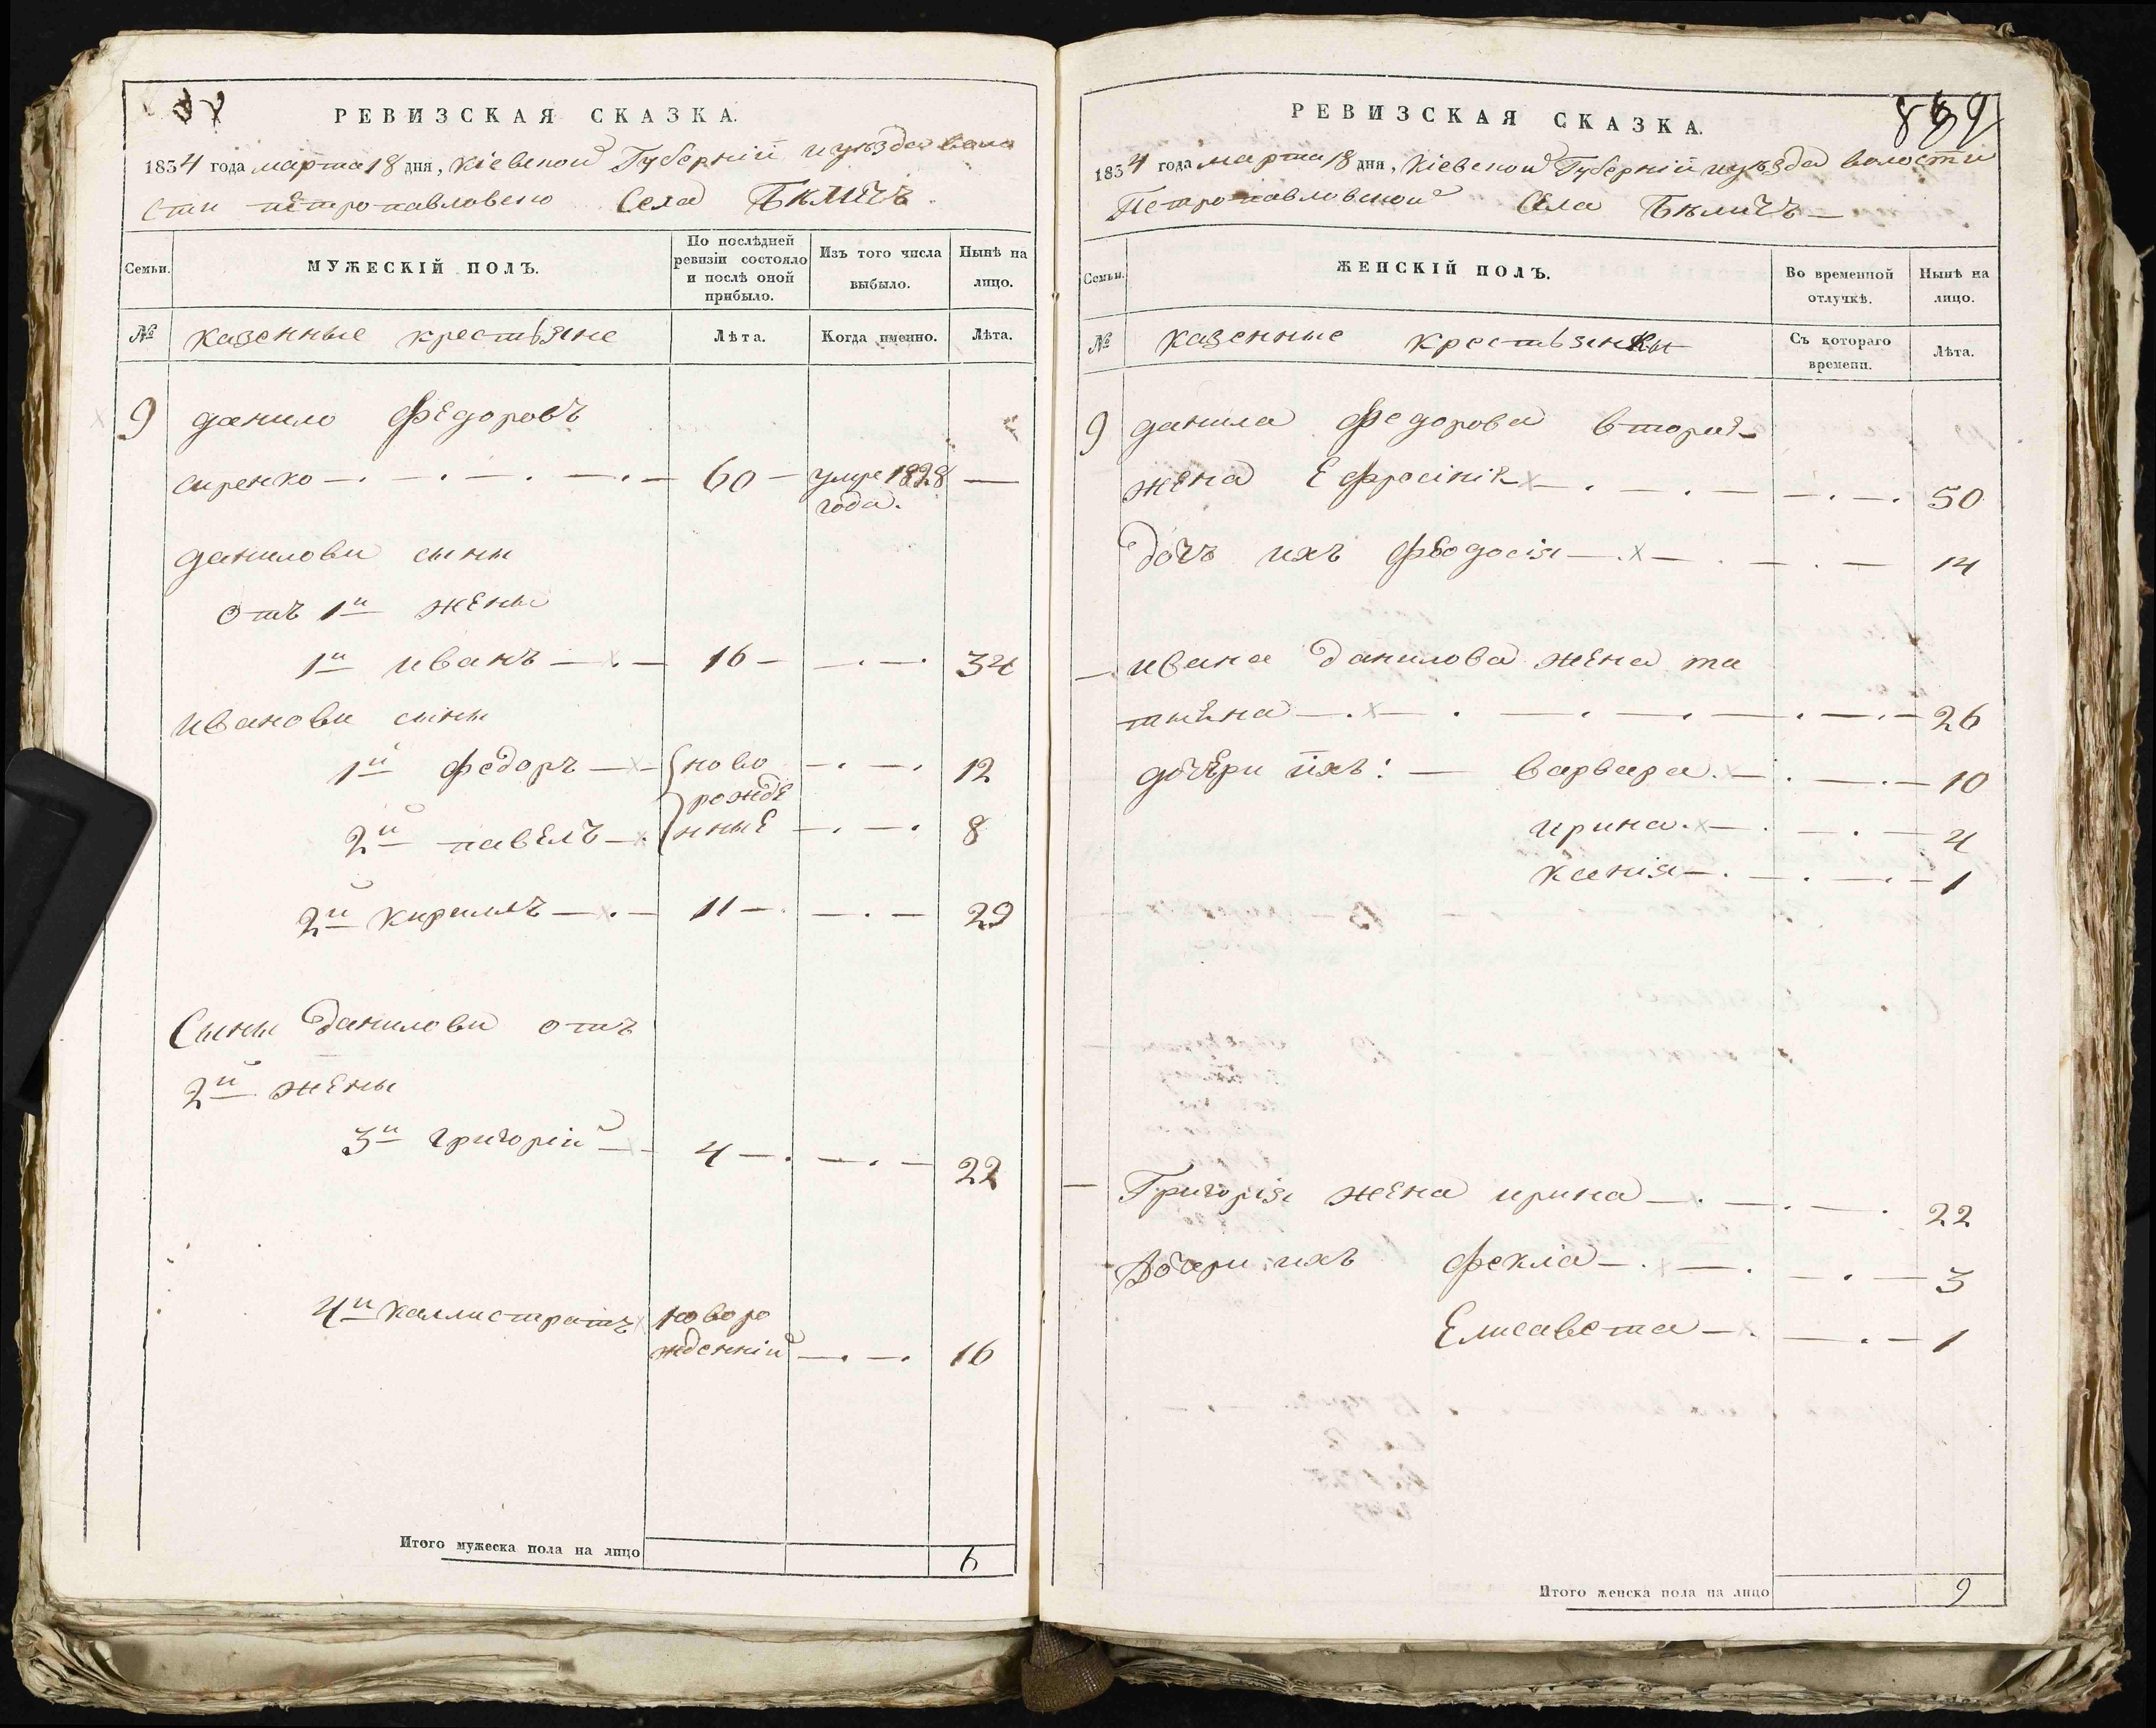 РЕВИЗСКАЯ СКАЗКА.
1834 года марта 18 дня, Кіевской Губерніи и уѣзда воло
сти петропавловско Села Бѣличъ
Семьи.
МУЖЕСКІЙ ПОЛЪ.
По послѣдней
ревизіи состояло
и послѣ оной
прибыло.
Изъ того числа
выбыло.
Нынѣ на
лицо.
№
казенные крестьяне
Лѣта.
Когда именно.
Лѣта.
9 данило Федоровъ
сиренко 60 умре 1828
года.
данилови сыны
отъ 1й жены
1й иванъ 16 34
ивановы сыны
1й федоръ ново 12
рожде
2й павелъ нные 8
2й кирилъ 11 29
Сыны данилови отъ
2й жены
3й григорій 4 22
4й каллистратъ новоро
жденній 16
Итого мужеска пола на лицо 6
РЕВИЗСКАЯ СКАЗКА.
1834 года марта 18 дня, Кіевской Губерніи и уѣзда волости
Петропавловской Села Бѣличъ
Семьи.
ЖЕНСКІЙ ПОЛЪ.
Во временной
отлучкѣ.
Нынѣ на
лицо.
№
казенные крестьянки
Съ котораго
времени.
Лѣта.
9 данила Федорова вторая
жена Ефросінія 50
дочъ ихъ Феодосія 14
ивана данилова жена та
тияна 26
дочери ихъ: варвара 10
ирина 4
ксенія 1
Григорія жена ирина 22
Дочери ихъ фекла 3
Елисавета 1
Итого женска пола на лицо 9